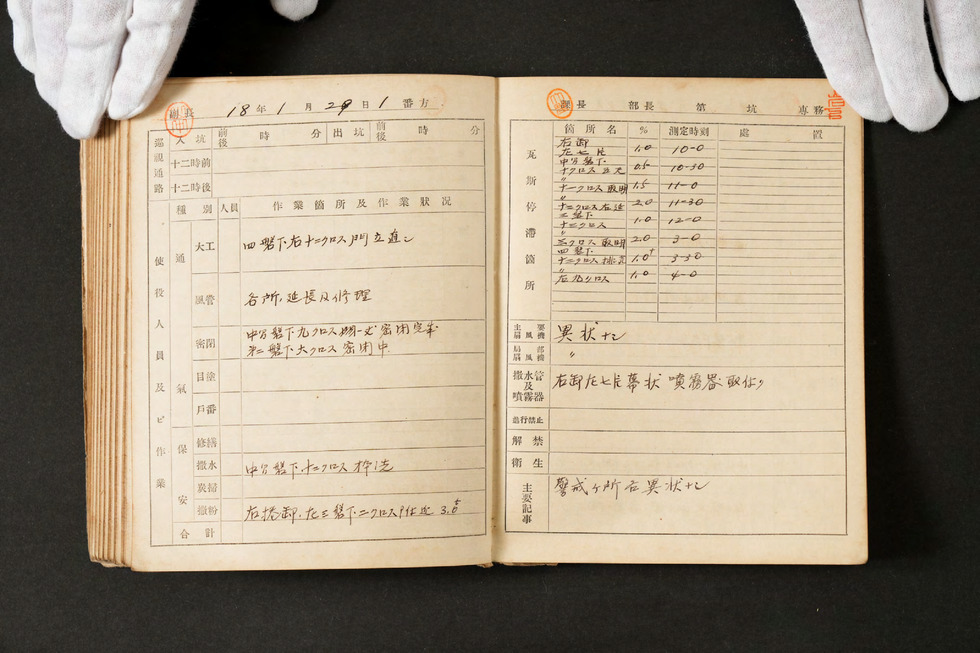 副長 18年1月29日1番方
巡視通路 入坑 前後 時 分 出坑 前後 時 分
十二時前
十二時後
種別 人員 作業箇所及作業狀况
使役人員及ビ作業
通氣
大工 四盤下右十二クロス門立直シ
風管 各所延長及修理
密閉 中分盤下九クロス 密閉完了
第二盤下六クロス密閉中
目塗
戶番
保安
修繕
撒水 中分盤下十二クロス枠洗
炭掃
撒粉 右捲卸、左三盤下二クロス 3.0
合計
課長 部長 第 坑 専務
瓦斯停滯箇所
箇所名 % 測定時刻 處置
右卸
左七片 1.0 10-0
中分盤下
十クロス 0.5 10-30
〃
十一クロス 1.5 11-0
〃
十二クロス右延 2.0 11-30
二盤下
十二クロス 1.0 12-0
〃
三クロス 2.0 3-0
四盤下
十二クロス 1.0 3-30
〃
右九クロス 1.0 4-0
主要扇風機 異狀ナシ
局部扇風機 〃
撒水管及噴霧器 右卸左七片幕状噴霧器取付
進行禁止
解禁
衛生
主要記事 警戒ヶ所右異状ナシ